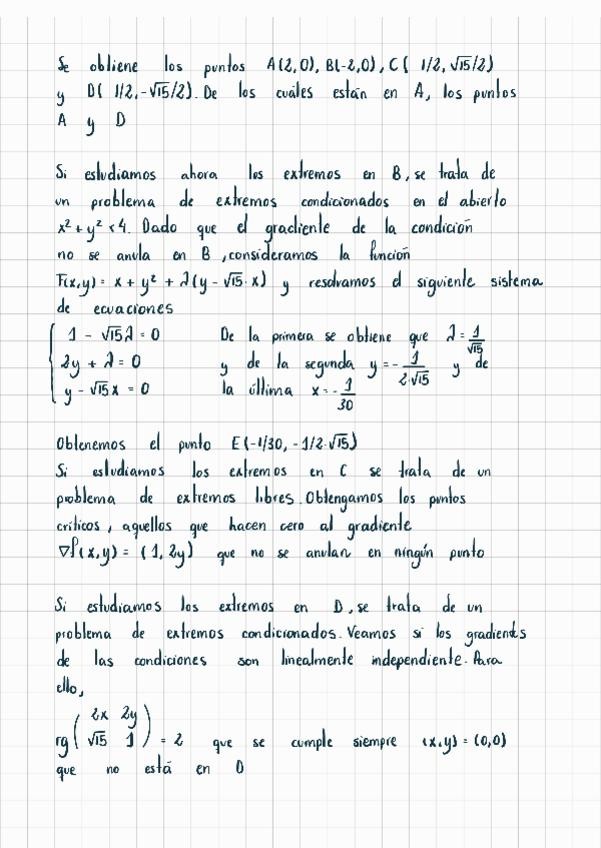 Se obtiene los puntos A(2,0), B(-2,0), C( 1/2, √15/2)
y D( 1/2,-√15/2). De los cuáles están en A, los puntos
A y D
Si estudiamos ahora los extremos en B, se trata de
un problema de extremos condicionados en el abierto
x² + y² < 4. Dado que el gradiente de la condición
no se anula en B, consideramos la función
F(x,y) = x + y² + λ(y - √15·x) y resolvamos el siguiente sistema
de ecuaciones
1 - √15λ = 0 De la primera se obtiene que λ = 1/√15
2y + λ = 0 y de la segunda y = - 1/2·√15 y de
y - √15x = 0 la última x = - 1/30
Obtenemos el punto E(-1/30, -1/2·√15)
Si estudiamos los extremos en C se trata de un
problema de extremos libres. Obtengamos los puntos
críticos, aquellos que hacen cero al gradiente
∇f(x,y) = (1, 2y) que no se anulan en ningún punto
Si estudiamos los extremos en D, se trata de un
problema de extremos condicionados. Veamos si los gradientes
de las condiciones son linealmente independiente. Para
ello,
rg( 2x 2y
√15 1 ) = 2 que se cumple siempre (x,y) = (0,0)
que no está en D